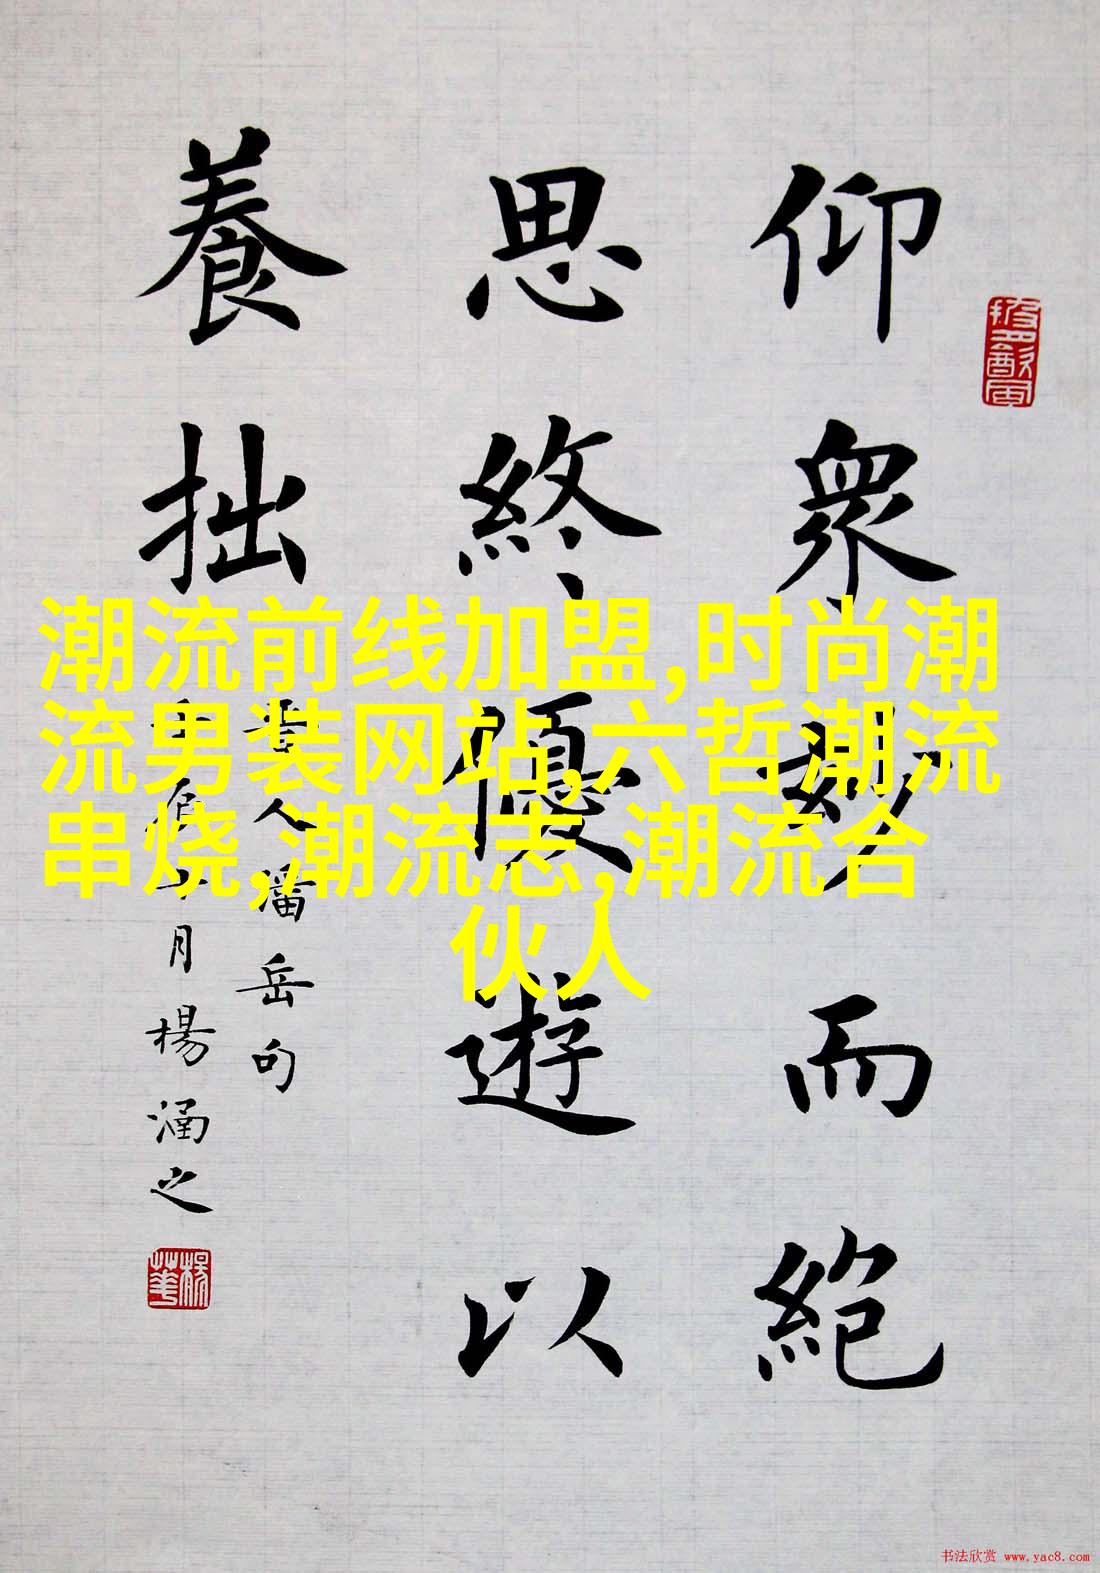 仰衆妙而絕
思終優遊以
養拙
晉人潘岳句
月楊涵之
潮流前线加盟,时尚潮
流男装网站,六哲潮流
串烧,潮流志,潮流合
伙人
书法欣赏 www.yac8.com